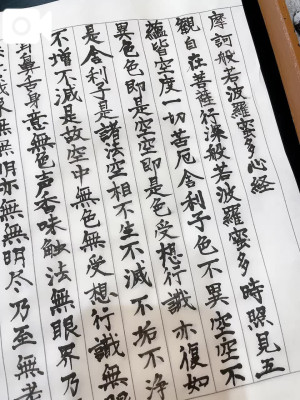 摩訶般若波羅蜜多心経
観自在菩薩行深般若波羅蜜多時照見五
蘊皆空度一切苦厄舎利子色不異空空不
異色色即是空空即是色受想行識亦復如
是舎利子是諸法空相不生不滅不垢不浄
不増不減是故空中無色無受想行識無眼
耳鼻舌身意無色声香味触法無眼界乃
界無無明亦無無明尽乃至無老